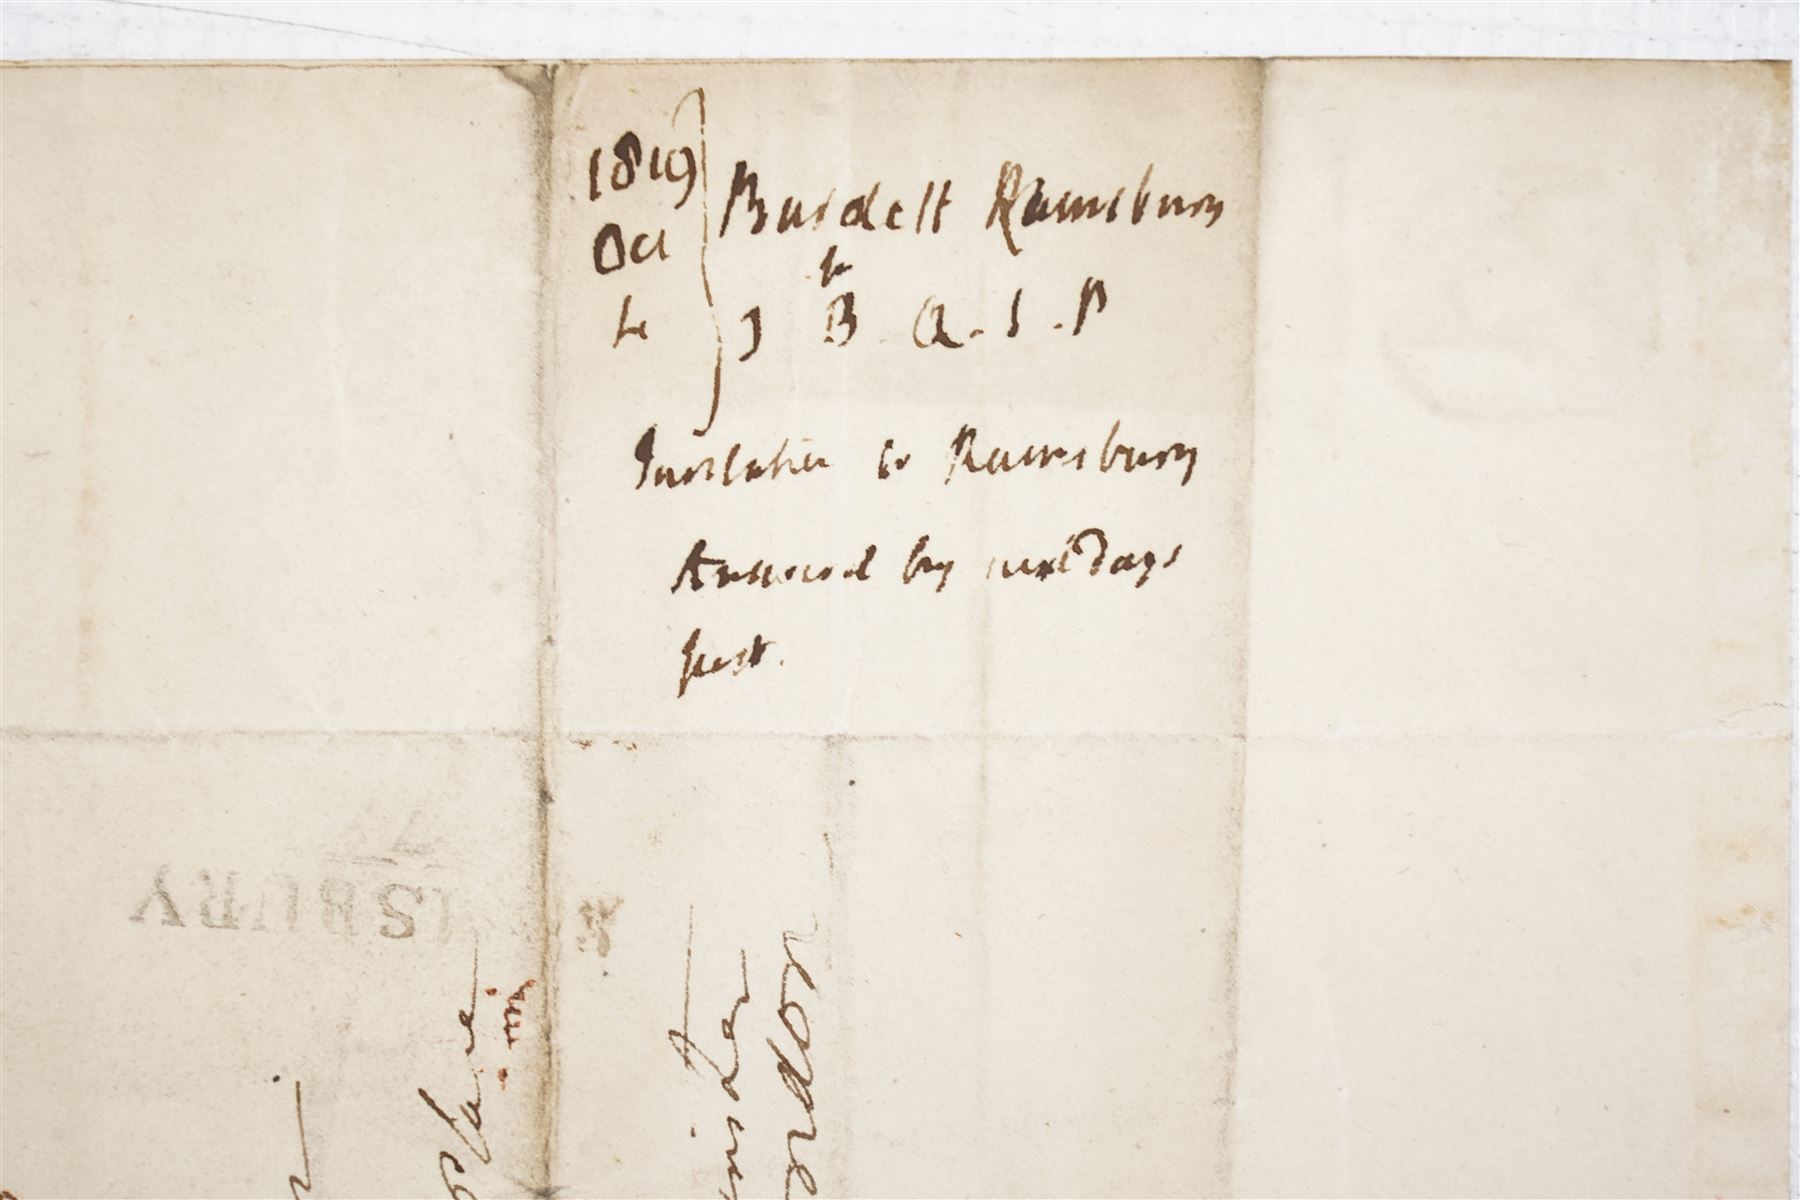 1819
Oct
4
Burdett Ramsbury
to
J B Q.S.P
Invitation to Ramsbury
Answered by next Days
post.
77
ISBURY